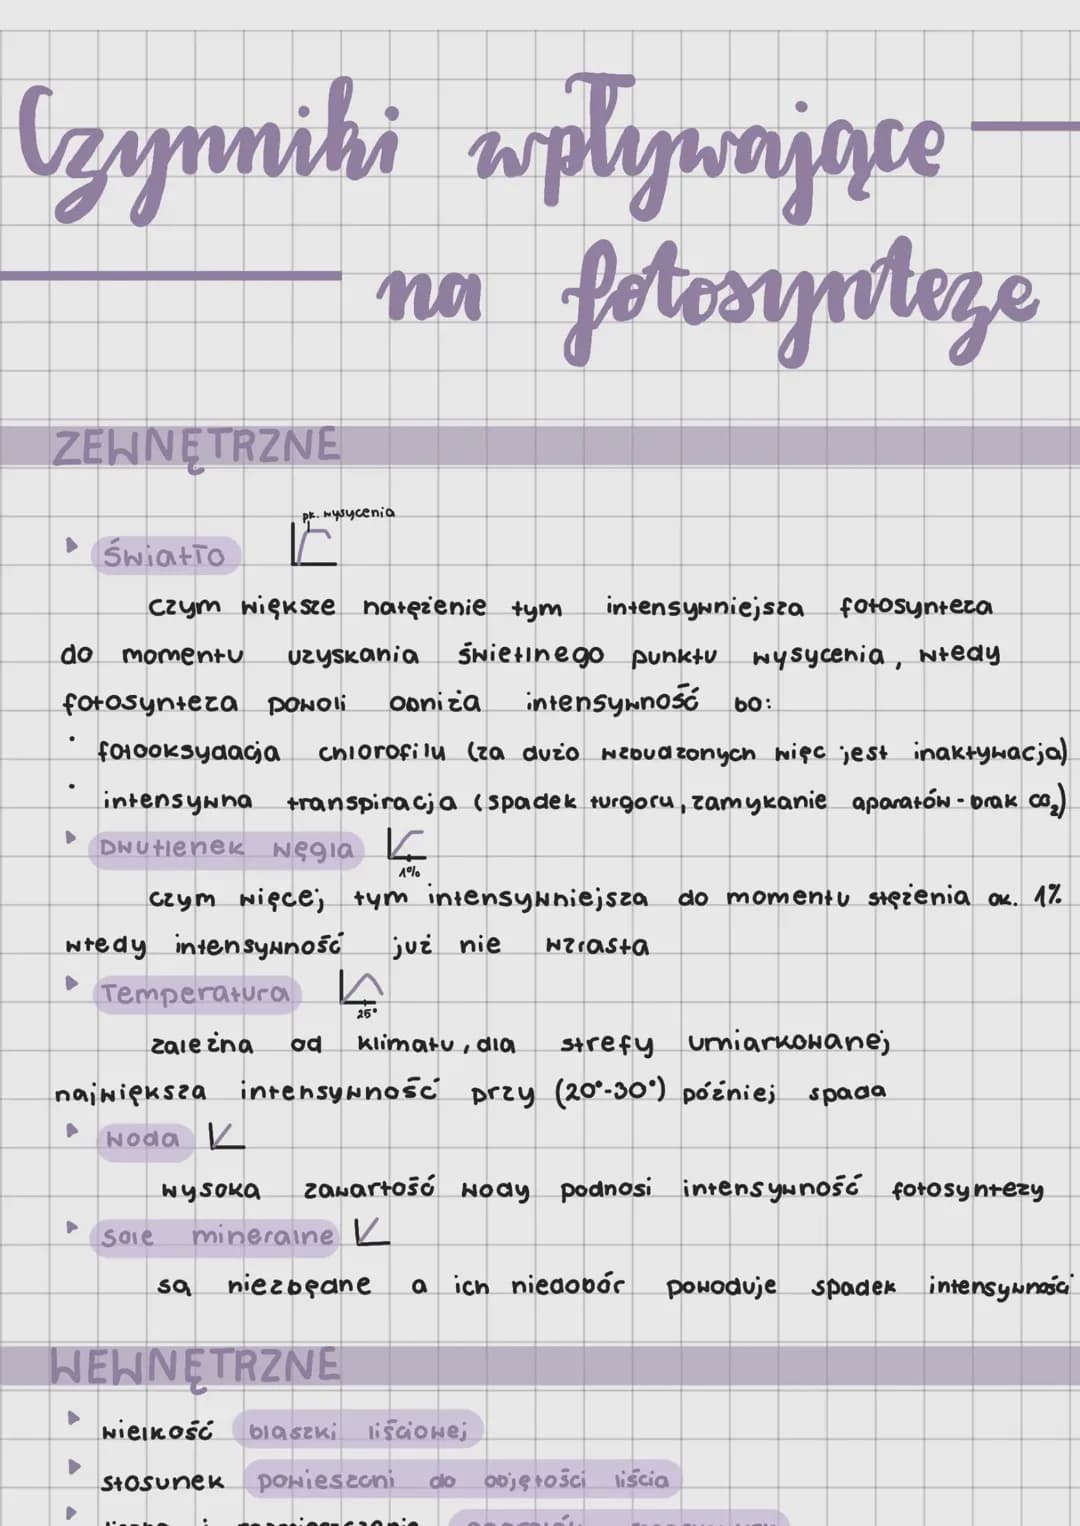 Czynniki wpływające
na fotosyntezę
ZEWNĘTRZNE
pkt. wysycenia
Światło
czym większe natężenie tym intensywniejsza fotosynteza
do momentu uzyskania świetlnego punktu wysycenia, wtedy
fotosynteza powoli obniża intensywność bo:
• fotooksydacja chlorofilu (za dużo wzbudzonych więc jest inaktywacja)
• intensywna transpiracja (spadek turgoru, zamykanie aparatów - brak CO₂)
Dwutlenek węgla
1%
czym więcej tym intensywniejsza do momentu stężenia ok. 1%
wtedy intensywność już nie wzrasta
Temperatura
25°
zależna od klimatu, dla strefy umiarkowanej
największa intensywność przy (20°-30°) później spada
Woda
wysoka zawartość wody podnosi intensywność fotosyntezy
sole mineralne
są niezbędne a ich niedobór powoduje spadek intensywności
WEWNĘTRZNE
wielkość blaszki liściowej
stosunek powieszcni do objętości liścia